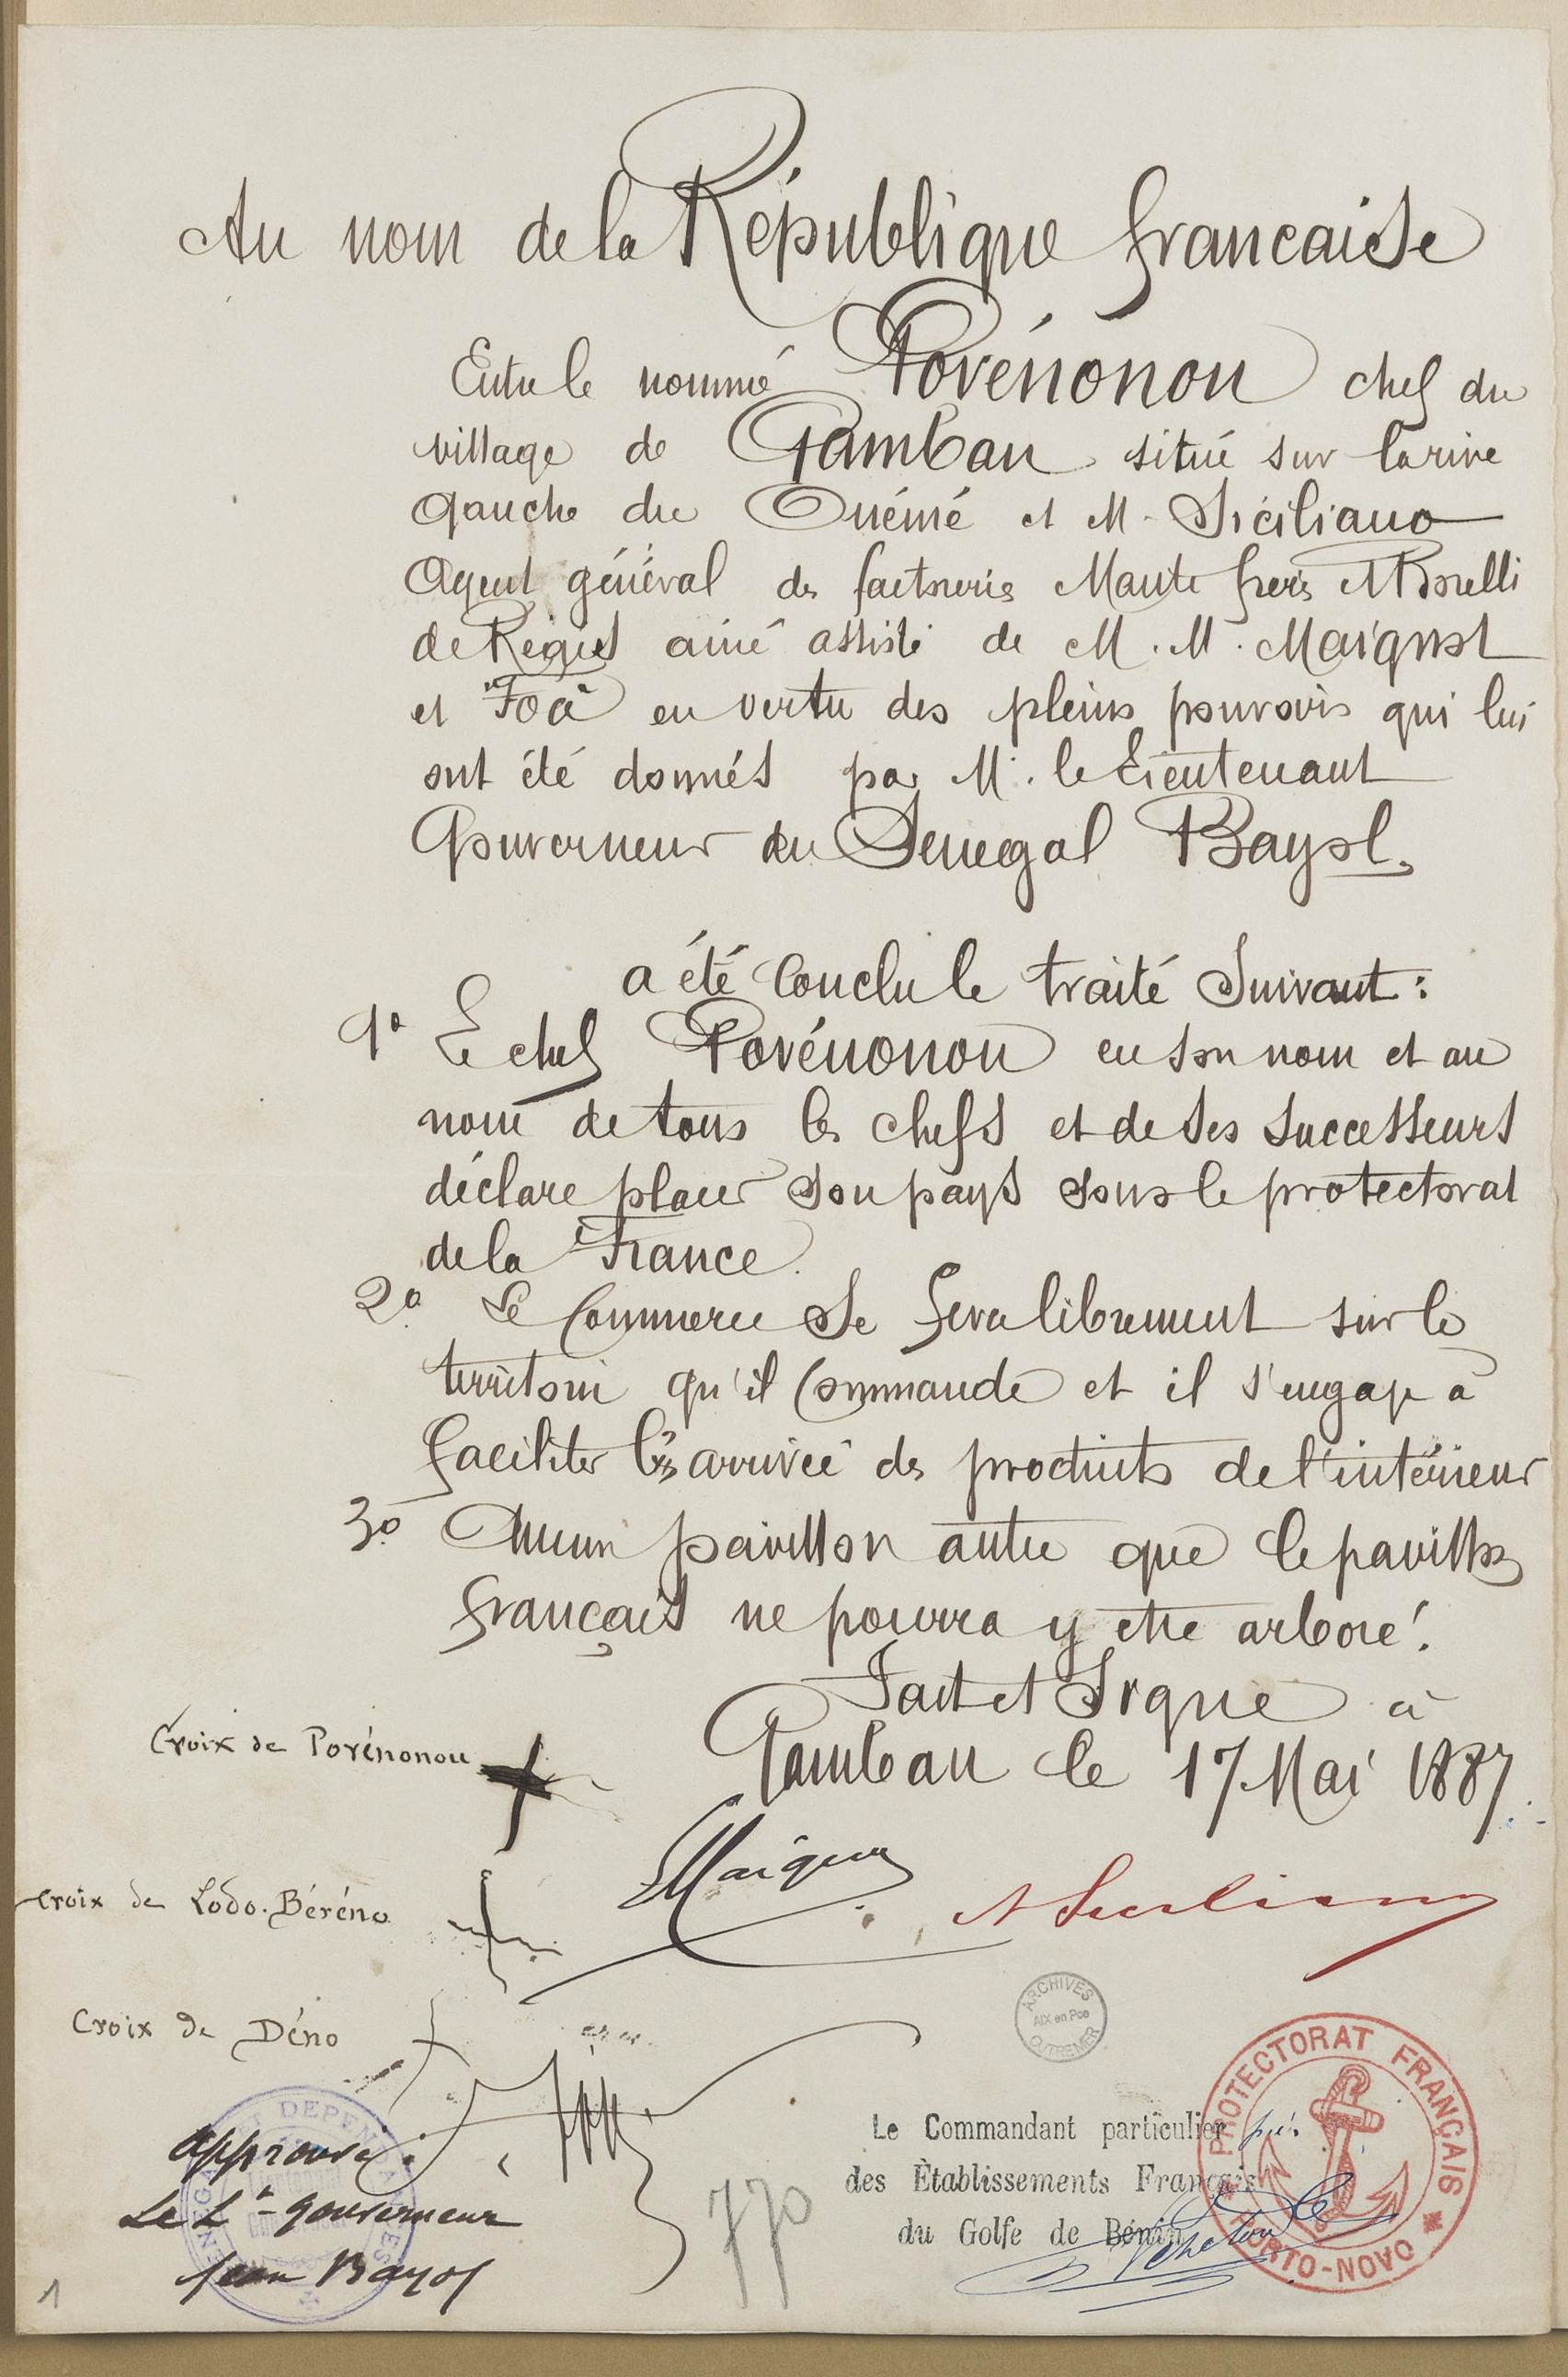 Au nom de la République francaise
Entre le nommé Povénonou chef du
village de Gambau situé sur la rive
gauche du Ouémé et M. Siciliano
Agent général des factoreries Mante frères et Borelli
de Régis ainé assisté de M. M. Maignot
et Foà en vertu des pleins pouvoirs qui lui
ont été donnés par M. le Lieutenant
Gouverneur du Sénégal Bayol.
a été conclu le traité suivant :
1° Le chef Povénonou en son nom et au
nom de tous les chefs et de ses successeurs
déclare placer son pays sous le protectorat
de la France.
2° Le Commerce se fera librement sur le
territoire qu'il commande et il s'engage à
faciliter les arrivée des produits de l'intérieur
3° Aucun pavillon autre que le pavillon
français ne pourra y etre arboré.
Fait et Signé à
Gambau le 17 Mai 1887.
Croix de Povénonou
EMaignot
Croix de Lodo. Béréno
A Siciliano
Croix de Déno
ARCHIVES
AIX en Pce
OUTREMER
PROTECTORAT FRANÇAIS
PORTO-NOVO
Le Commandant particulier
des Établissements Français
du Golfe de Bénin
SENEGAL ET DEPENDANCES
Approuvé :
Le Lt - gouverneur
Jean Bayol
770
1